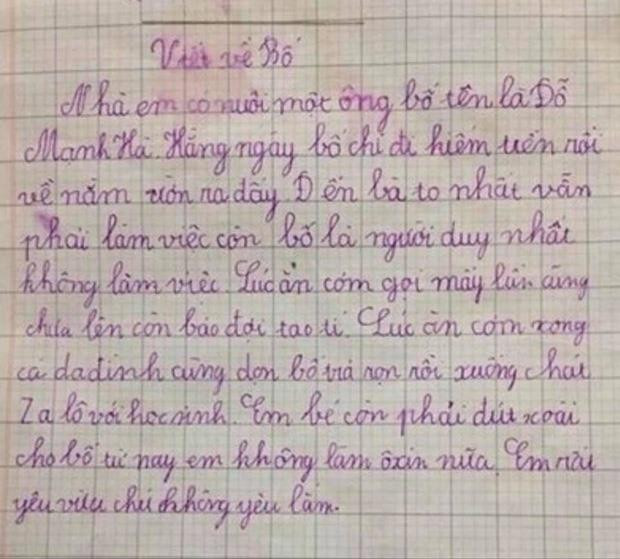 Viết về Bố
Nhà em có nuôi một ông bố tên là Đỗ
Mạnh Hà. Hằng ngày bố chỉ đi kiếm tiền rồi
về nằm ườn ra đấy. Đến bà to nhất vẫn
phải làm việc còn bố là người duy nhất
không làm việc. Lúc ăn cơm gọi mấy lần cũng
chưa lên còn bảo đợi tao tí. Lúc ăn cơm xong
cả da đình cũng dọn bố trả rọn rồi xuống chát
Za lô với học sinh. Em bé còn phải đút xoài
cho bố từ nay em không làm ôxin nữa. Em rất
yêu chứ không yêu lắm.